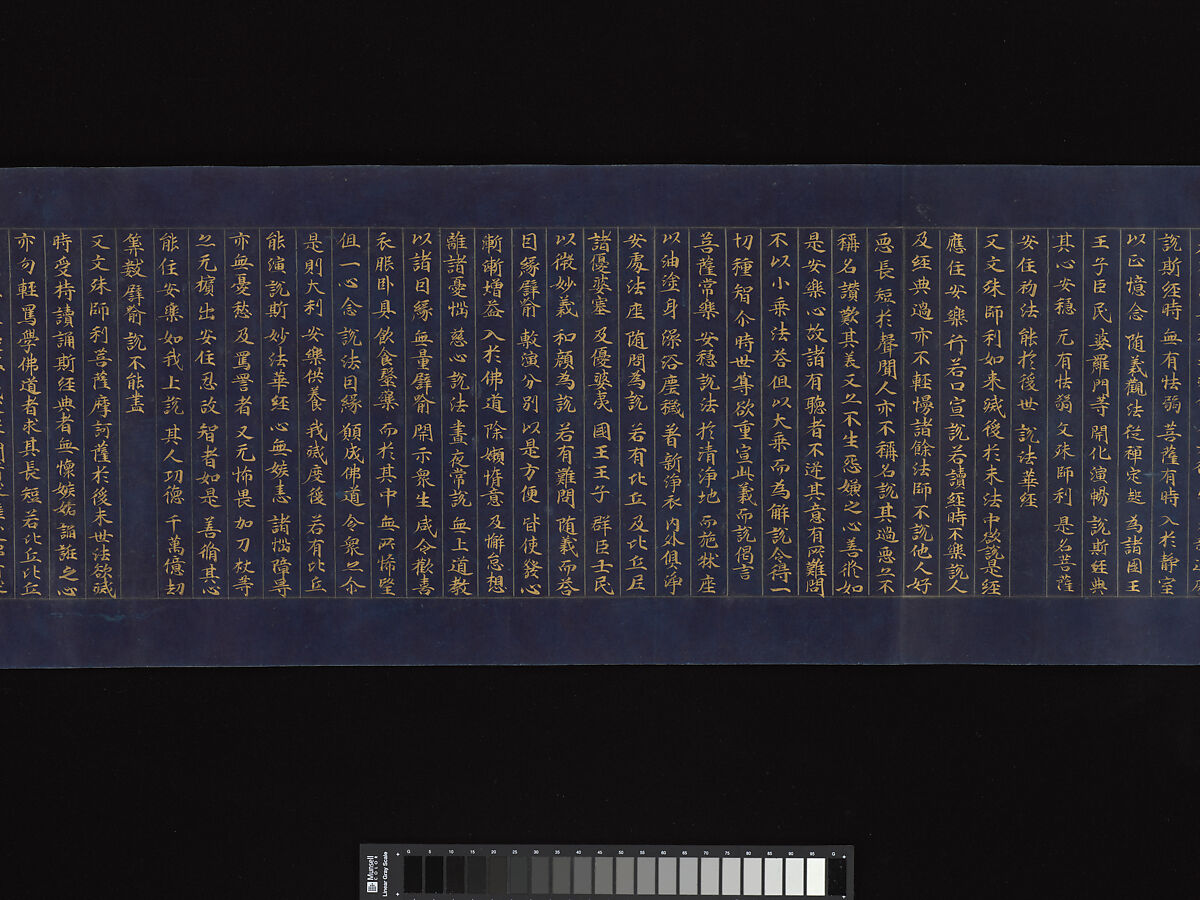 說斯經時 無有怯弱 菩薩有時 入於靜室
以正憶念 隨義觀法 從禪定起 為諸國王
王子臣民 婆羅門等 開化演暢 說斯經典
其心安穩 无有怯弱 文殊師利 是名菩薩
安住初法 能於後世 說法華經
又文殊師利如来滅後於末法中欲說是經
應住安樂行若口宣說若讀經時不樂說人
及經典過亦不輕慢諸餘法師不說他人好
惡長短於聲聞人亦不稱名說其過惡亦不
稱名讚歎其美又亦不生怨嫌之心善修如
是安樂心故諸有聽者不逆其意有所難問
不以小乘法荅但以大乘而為解說令得一
切種智尒時世尊欲重宣此義而說偈言
菩薩常樂 安穩說法 於清淨地 而施牀座
以油塗身 澡浴塵穢 著新淨衣 內外俱淨
安處法座 随問為說 若有比丘 及比丘尼
諸優婆塞 及優婆夷 國王王子 群臣士民
以微妙義 和顏為說 若有難問 随義而荅
因緣譬喻 敷演分別 以是方便 皆使發心
漸漸增益 入於佛道 除嬾惰意 及懈怠想
離諸憂惱 慈心說法 晝夜常說 無上道教
以諸因緣 無量譬喻 開示衆生 咸令歡喜
衣服卧具 飲食醫藥 而於其中 無所悕望
但一心念 說法因緣 願成佛道 令衆亦尒
是則大利 安樂供養 我滅度後 若有比丘
能演說斯 妙法華經 心無嫉恚 諸惱障㝵
亦無憂愁 及罵詈者 又无怖畏 加刀杖等
亦无擯出 安住忍故 智者如是 善脩其心
能住安樂 如我上說 其人功德 千萬億劫
筭數譬喻 說不能盡
又文殊師利菩薩摩訶薩於後末世法欲滅
時受持讀誦斯經典者無懷嫉妬諂誑之心
亦勿輕罵學佛道者求其長短若比丘比丘
Munsell COLOR
Linear Gray Scale
G 5 10 15 20 25 30 35 40 45 50 55 60 65 70 75 80 85 90 95 G